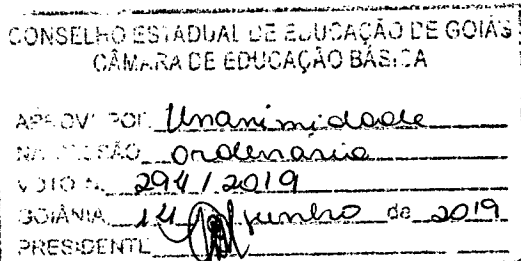 CONSELHO ESTADUAL DE EDUCAÇÃO DE GOIÁS
CÂMARA DE EDUCAÇÃO BÁSICA
APROV. POR Unanimidade
NA SESSÃO ordenaria
VOTO N. 294 / 2019
GOIÂNIA, 14 junho de 2019
PRESIDENTE